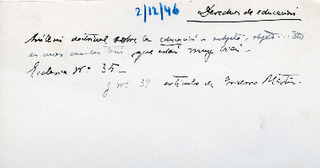 2/12/46 Derechos de educación
Análisis doctrinal sobre la educación = sujeto, objeto...
en unos cuantos, que están muy bien.-
Ecclesia Nº 35 -
y nº 38 artículo de Martín.